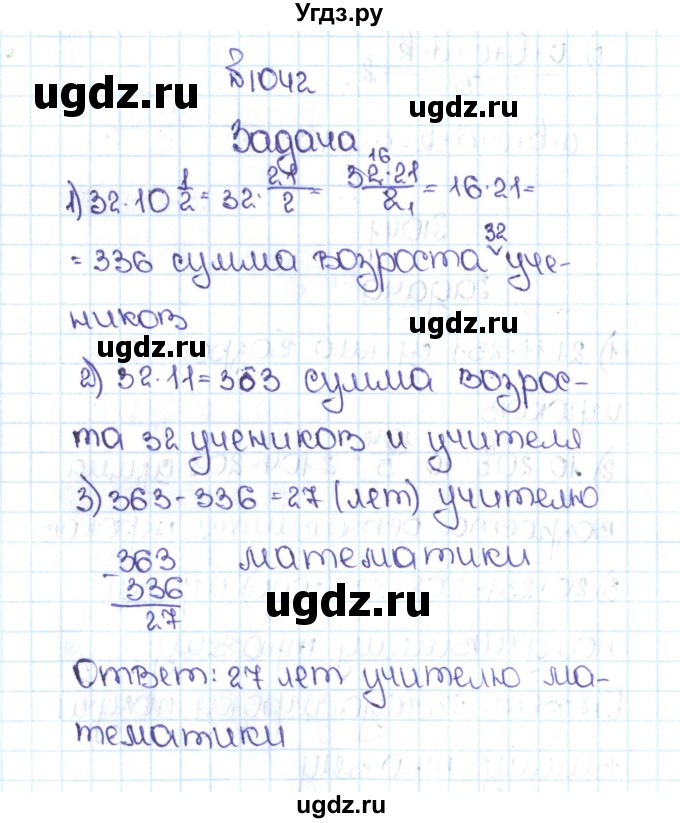 Угдз.ру
№1042
ugdz.ru
ugdz.ru
Задача
1) 32·10 1/2 = 32· 21/2 = 32·21/2 = 16·21=
16
1
32
= 336 сумма возроста уче-
ников
ugdz.ru
ugdz.ru
2) 32·11=363 сумма возрос-
та 32 учеников и учителя
3) 363-336=27 (лет) учителю
363 математики
- 336
27
ugdz.ru
ugdz.ru
Ответ: 27 лет учителю ма-
тематики
ugdz.ru
ugdz.ru